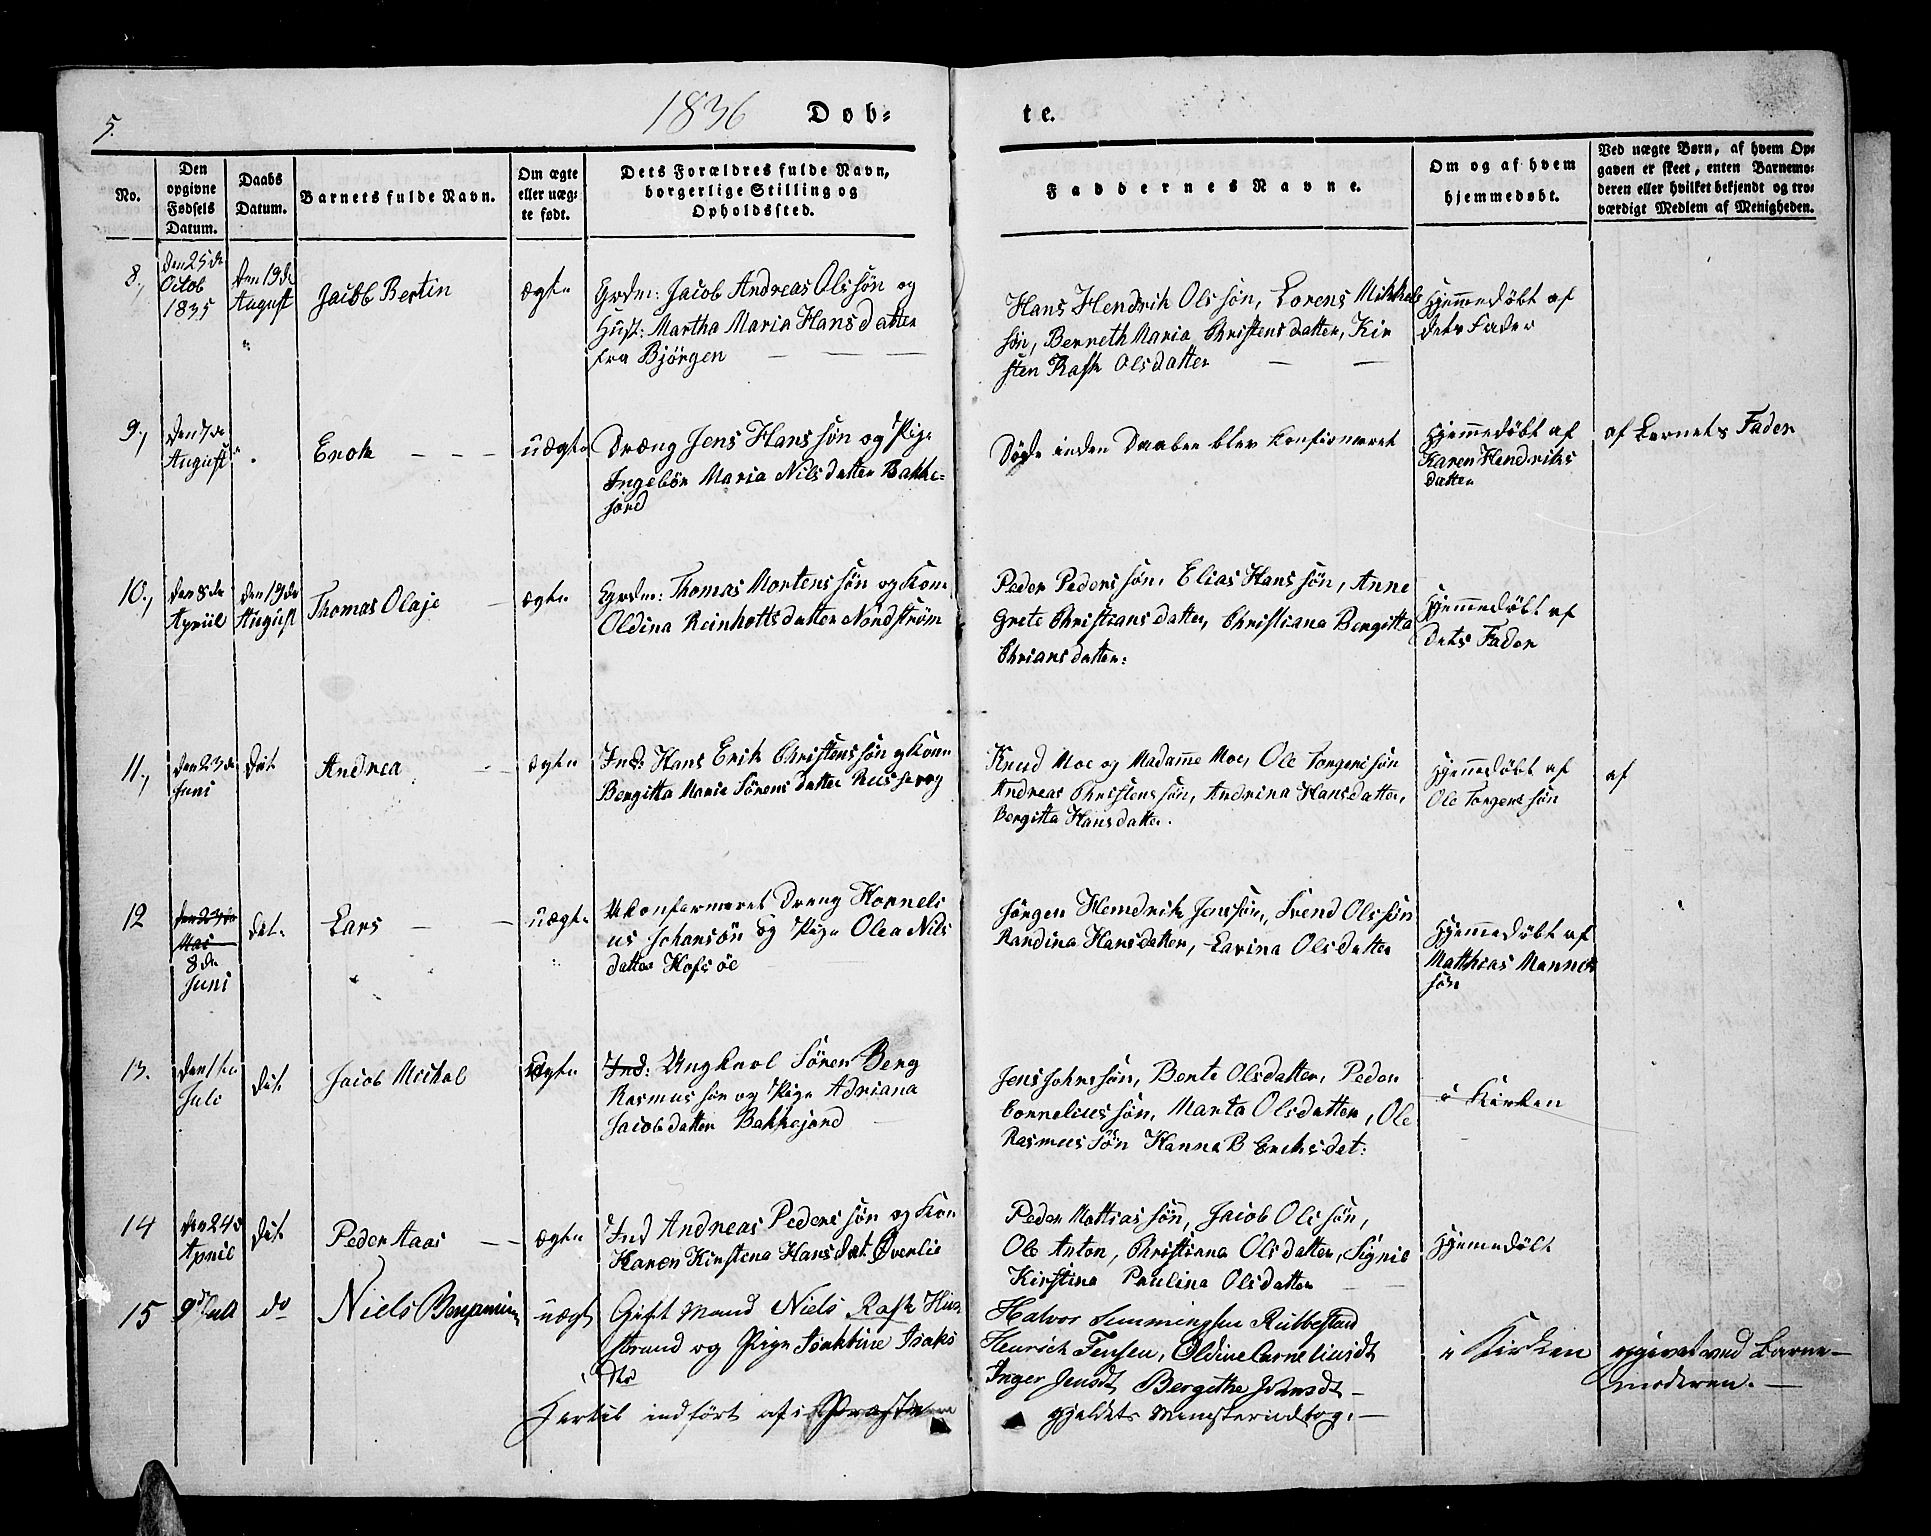 5.
1836 Døb-
te.
No.
Den opgivne Fødsels Datum.
Daabs Datum.
Barnets fulde Navn.
Om ægte eller uægte født.
Dets Forældres fulde Navn, borgerlige Stilling og Opholdssted.
Faddernes Navne.
Om og af hvem hjemmedøbt.
Ved uægte Børn, af hvem Opgaven er skeet, enten Barnemoderen eller hvilket bekjendt og troværdigt Medlem af Menigheden.
8.,
den 25de
Octob
1835
den 19de
August
Jacob Bertin
ægte
Grdm: Jacob Andreas Olssøn og
Hust: Martha Maria Hansdatter
fra Bjørgen
Hans Hendrik Olssøn, Lorens Mikkels
søn, Berneth Maria Christensdatter, Kir
sten Rask Olsdatter
Hjemmedøbt af
dets Fader
9.,
den 7de
August
Enok
uægte
Dræng Jens Hanssøn og Pige
Ingebør Maria Nilsdatter Bakke-
jord
Døde inden Daaben blev Konfirmeret
Hjemmedøbt af
Karen Hendriks
datter
af Barnets Fader
10.,
den 8de
Apriil
den 19de
August
Thomas Olaje
ægte
Grdm: Thomas Mortenssøn og Kone
Oldina Reinholtsdatter Nordstrøm
Peder Pederssøn, Elias Hanssøn, Anne
Grete Christiansdatter, Christiana Bergitta
Chriansdatter:
Hjemmedøbt af
dets Fader
11.,
den 23de
Juni
Dat.
Andrea
ægte
Ind: Hans Erik Christenssøn og Kone
Bergitta Marie Sørensdatter Russevog
Knud Moe og Madamme Moe, Ole Torgerssøn
Andreas Christenssøn, Andrina Hansdatter,
Bergitta Hansdatter.
Hjemmedøbt af
Ole Torgerssøn
af
12
den 23de
Mai
8de
Juni
Dat.
Lars
uægte
Ukonfermeret Dreng Korneli
us Johansøn og Pige Olea Nils
datter Hofsøe
Jørgen Hendrik Jenssøn, Svend Olssøn
Randina Hansdatter, Larina Olsdatter
Hjemmedøbt af
Matthias Mannes
søn
13.
den 1te
Juli
Dat.
Jacob Mickal
Ægte
Ind: Ungkarl Søren Berg
Rasmussøn og Pige Adriana
Jacobdatter Bakkejord
Jens Johnssøn, Bente Olsdatter, Peder
Corneliussøn, Marta Olsdatter, Ole
Rasmussøn Hanna B Eriksdat:
i Kirken
14
den 24de
April
Dat.
Peder Aaas
ægte
Ind Andreas Pederssøn og Kone
Karen Kirstena Hansdat Øverlie
Peder Mattiassøn, Jacob Olssøn,
Ole Anton, Christiana Olsdatter, Signil
Kirstina Paulina Olsdatter
Hjemedøbt
15
9d Juli
do
Niels Benjamin
uægte
Gift Mand Niels Rask
strand og Pige Isaks
dtr
Halvor Rubbestad
Henrich Jensen, Oldine Corneliusdt
Inger Jensdt Bergithe Johnsdt
i Kirken
opgivet ved Barne-
moderen.
Hertil indført af i Præste
gjeldets Ministerialbog.